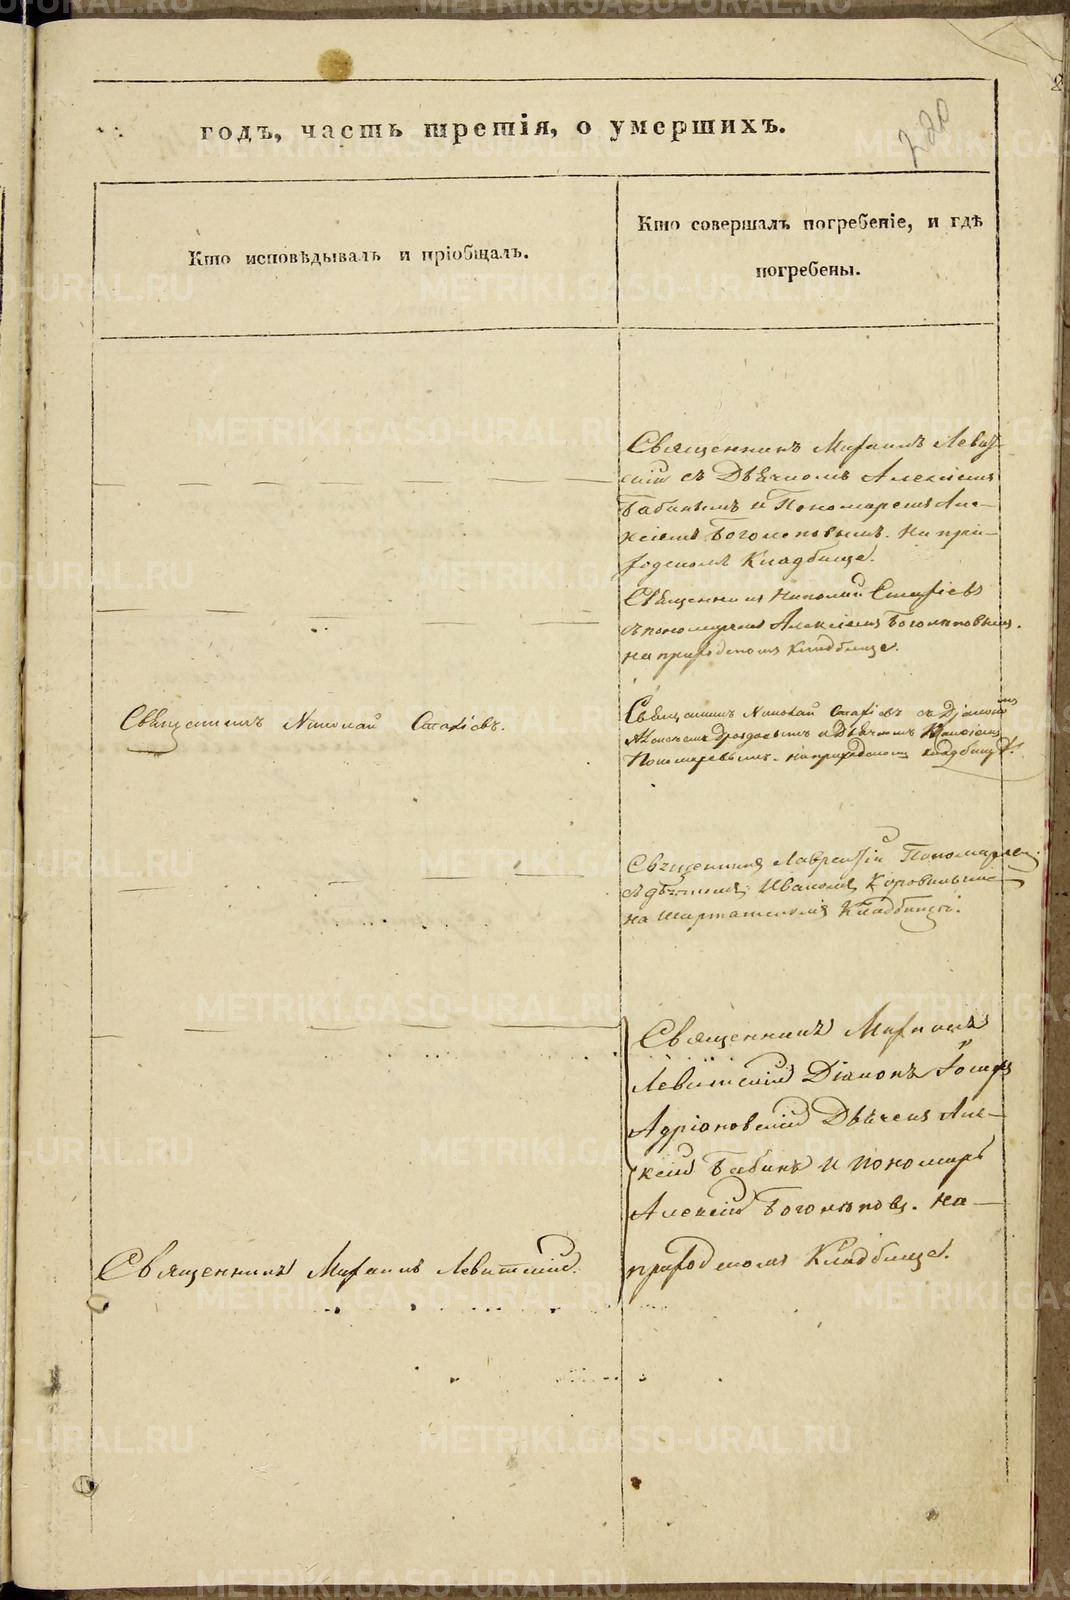 годъ, часть третія, о умершихъ.
220
Кто исповѣдывалъ и пріобщалъ.
Кто совершалъ погребеніе, и гдѣ
погребены.
Священникъ Михаилъ Левит-
скій съ Дьячкомъ Алексіемъ
Бабинымъ и Пономаремъ Але-
ксіемъ Боголеповымъ. На при-
ходскомъ Кладбище.
Священникъ Николай Стахіевъ
съ пономаремъ Алексіемъ Боголеповымъ.
на приходскомъ кладбище.
Священникъ Николай Стахіевъ.
Священникъ Николай Стахіевъ съ Діакономъ
Дроздовымъ и Дьячкомъ
Пономаревымъ. на приходскомъ кладбищѣ.
Священникъ Лаврентій Пономаревъ
съ дьячкомъ Иваномъ Коровинымъ
на Шарташскомъ Кладбищѣ.
Священникъ Михаилъ
Левитскій Діаконъ
Адріановскій Дьячекъ Але-
ксій Бабинъ и пономарь
Алексій Боголеповъ. на
приходскомъ Кладбище.
Священникъ Михаилъ Левитскій.
METRIKI.GASO-URAL.RU